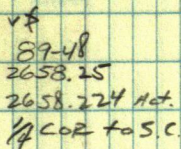 v$
89-48
2658.25
2658.224 Hot.
1/4 COR to S.C.